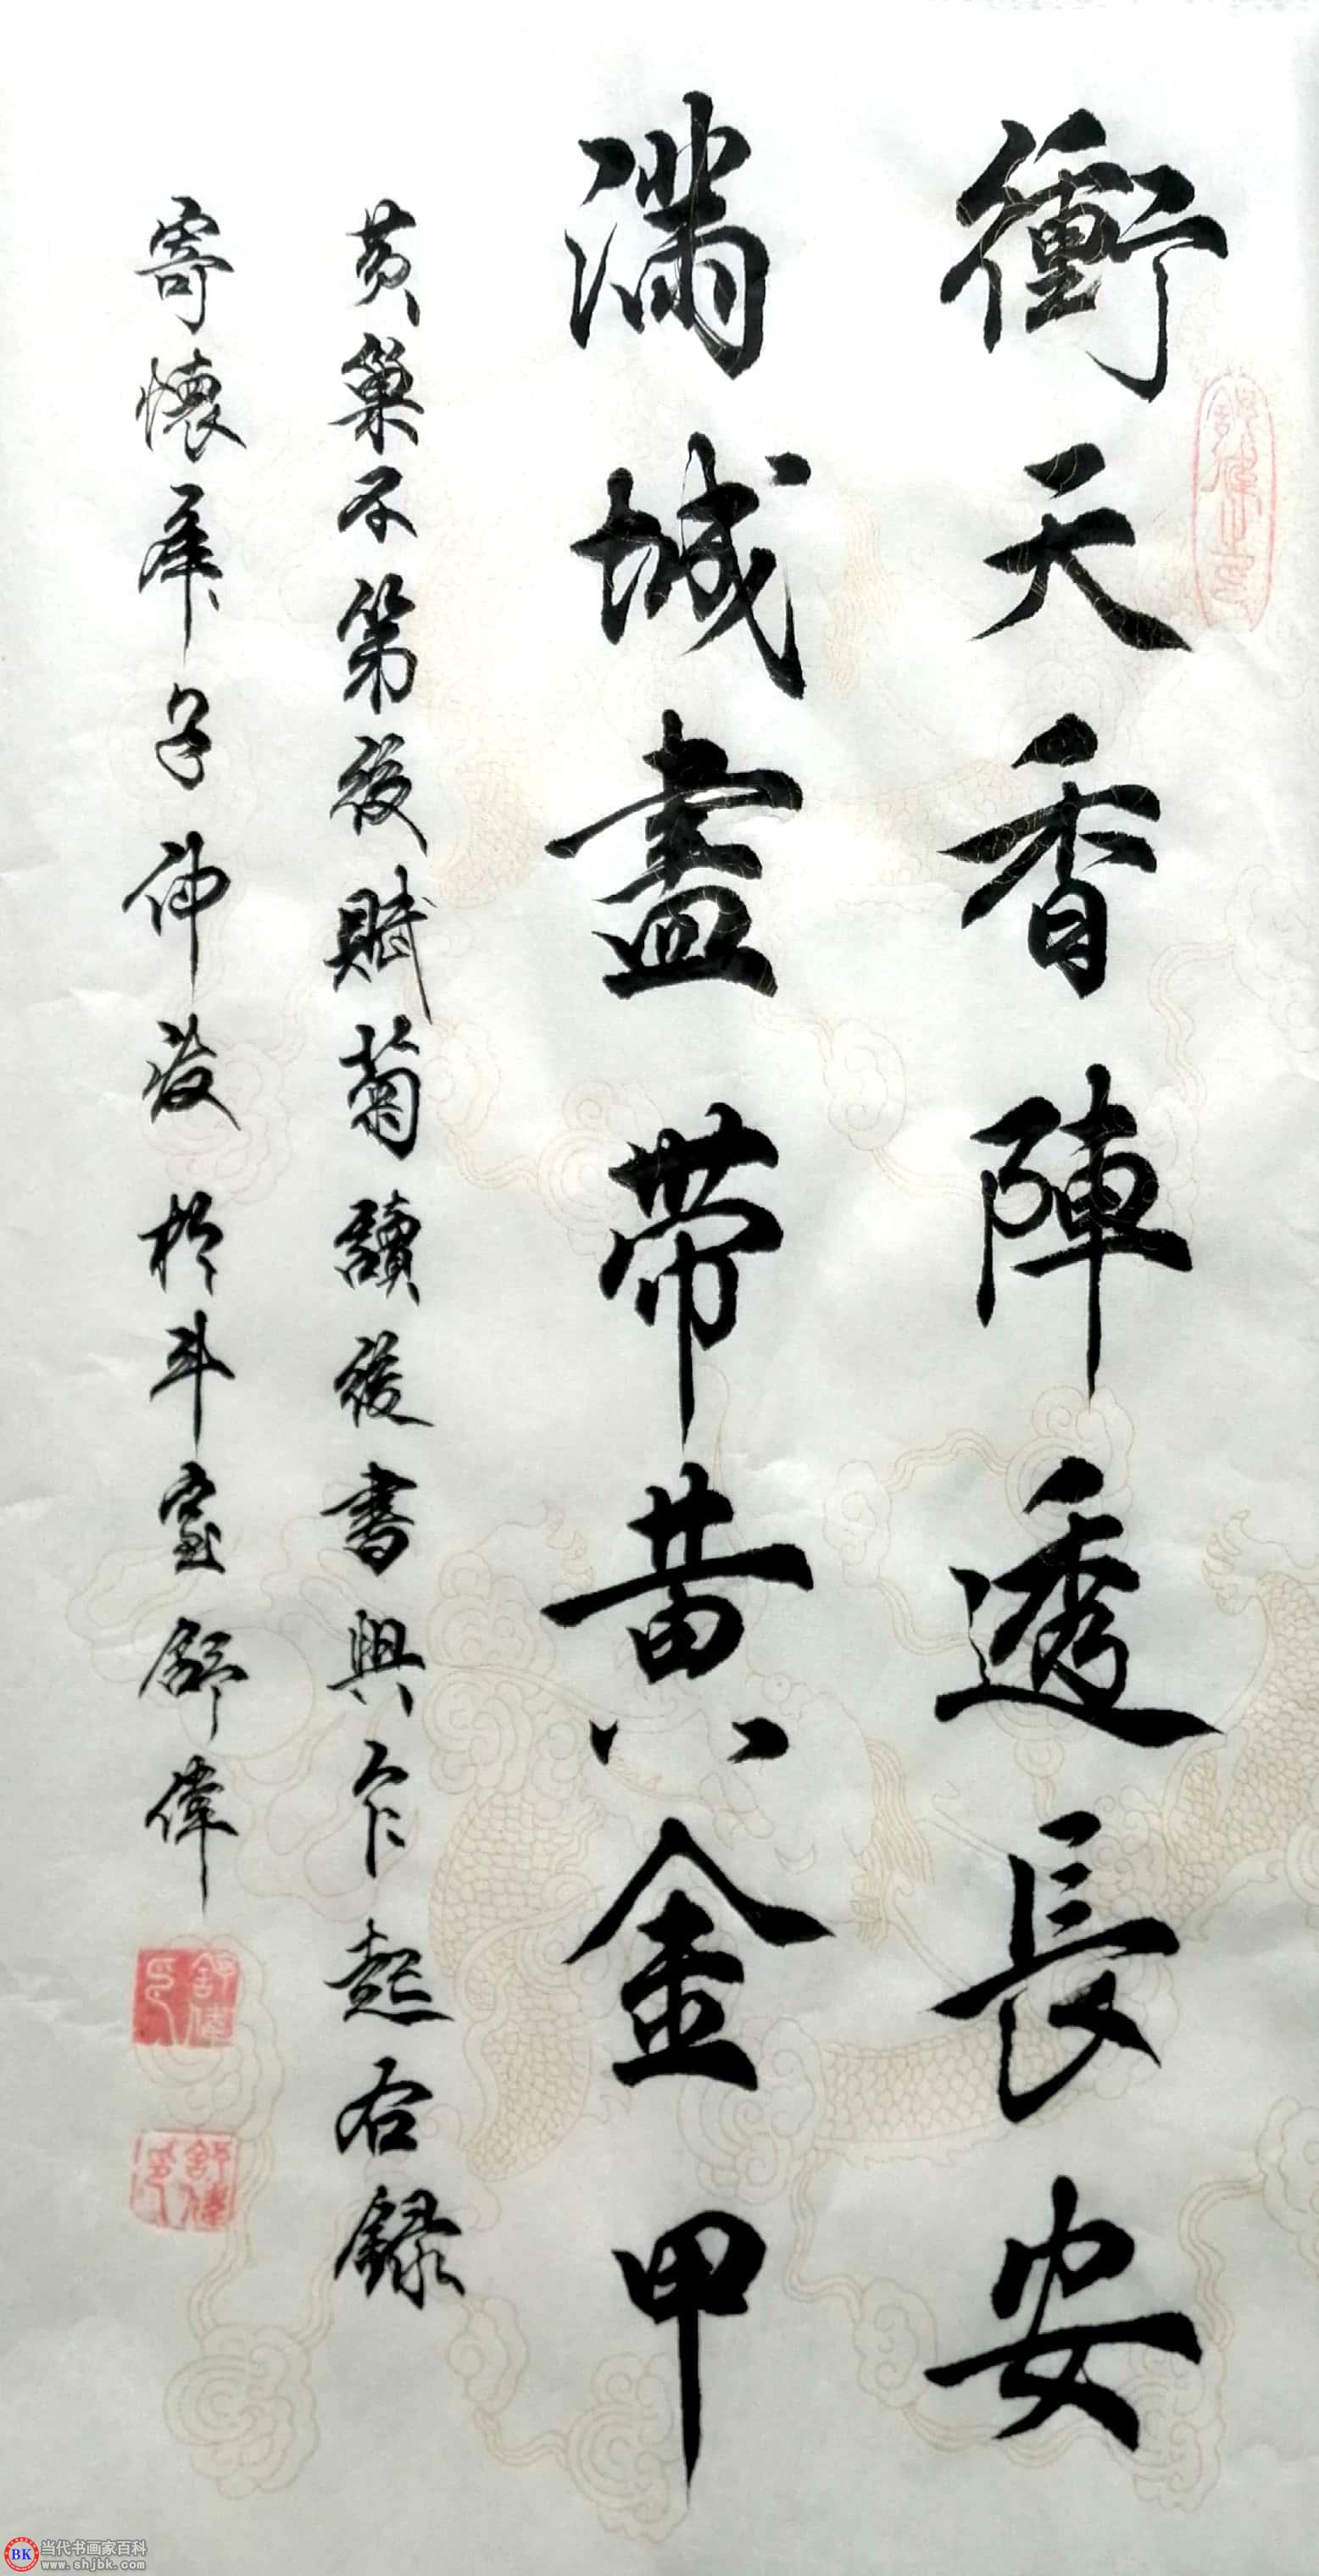 衝天香陣透長安
滿城盡帶黃金甲
黄巢不第後賦菊讀後書興乍起右錄
寄懷庚子仲夏於斗室舒偉
舒偉印
舒偉印
BK 当代书画家百科
www.shjbk.com